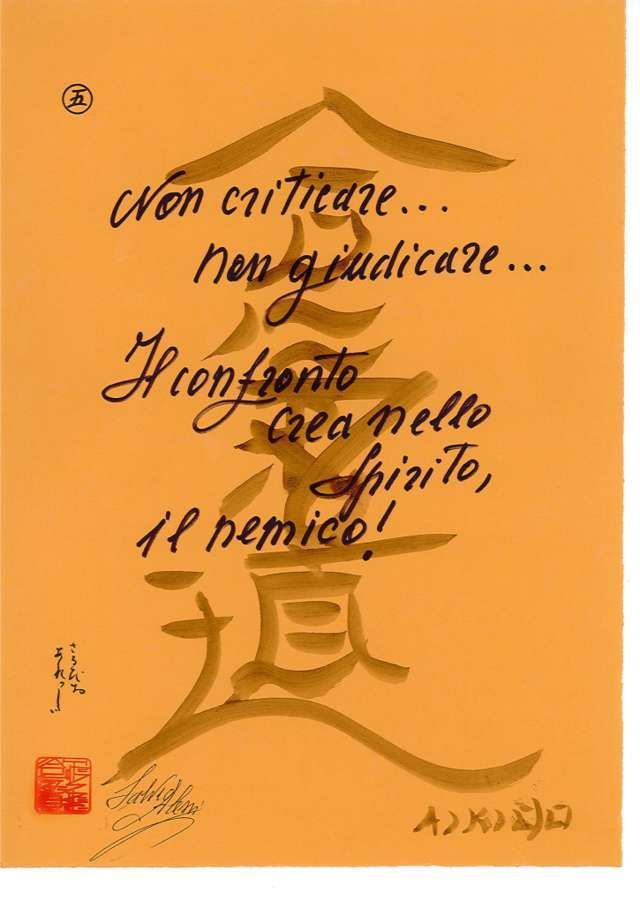 五
Non criticare...
non giudicare...
Il confronto
crea nello
Spirito,
il nemico!
合氣道
AIKIDO